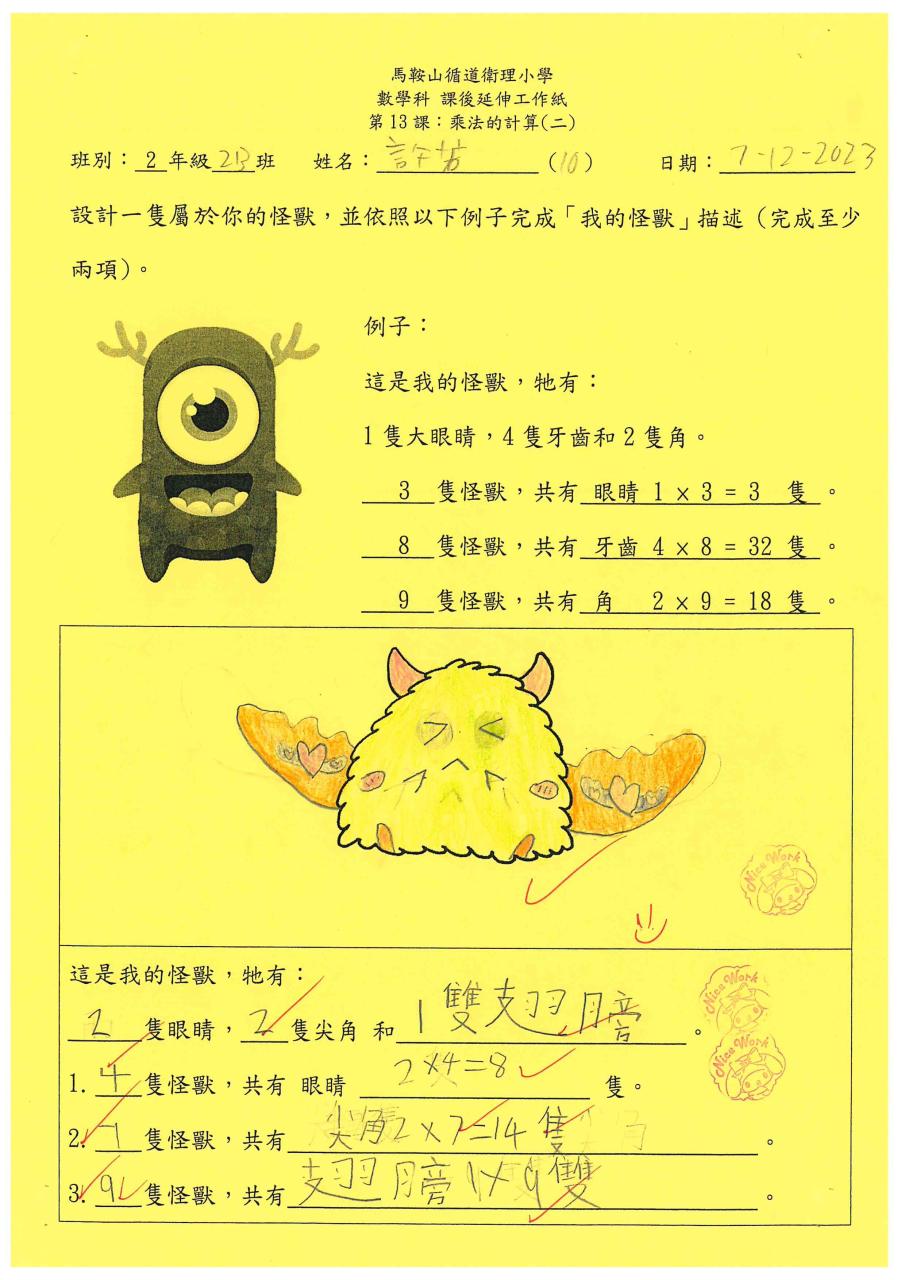 馬鞍山循道衛理小學
數學科 課後延伸工作紙
第13課：乘法的計算(二)
班別：2年級2B班 姓名：許 (10) 日期：7-12-2023
設計一隻屬於你的怪獸，並依照以下例子完成「我的怪獸」描述（完成至少
兩項)。
例子：
這是我的怪獸，牠有：
1隻大眼睛，4隻牙齒和2隻角。
3 隻怪獸，共有 眼睛 1 × 3 = 3 隻 。
8 隻怪獸，共有 牙齒 4 × 8 = 32 隻 。
9 隻怪獸，共有 角 2 × 9 = 18 隻 。
Nice Work
這是我的怪獸，牠有：
2 隻眼睛，2 隻尖角 和 1雙翅膀 。
Nice Work
1. 4 隻怪獸，共有 眼睛 2×4=8 隻。
Nice Work
2. 7 隻怪獸，共有 尖角2×7=14隻 。
3. 9 隻怪獸，共有 翅膀1×9雙 。